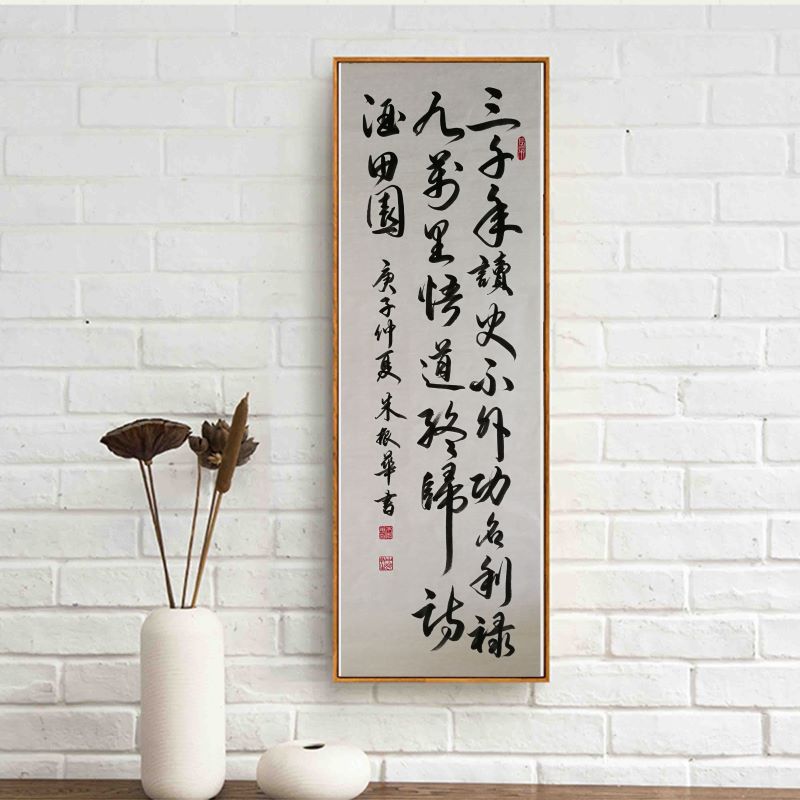 三千年讀史不外功名利祿
九萬里悟道終歸詩
酒田園
庚子仲夏朱振華書